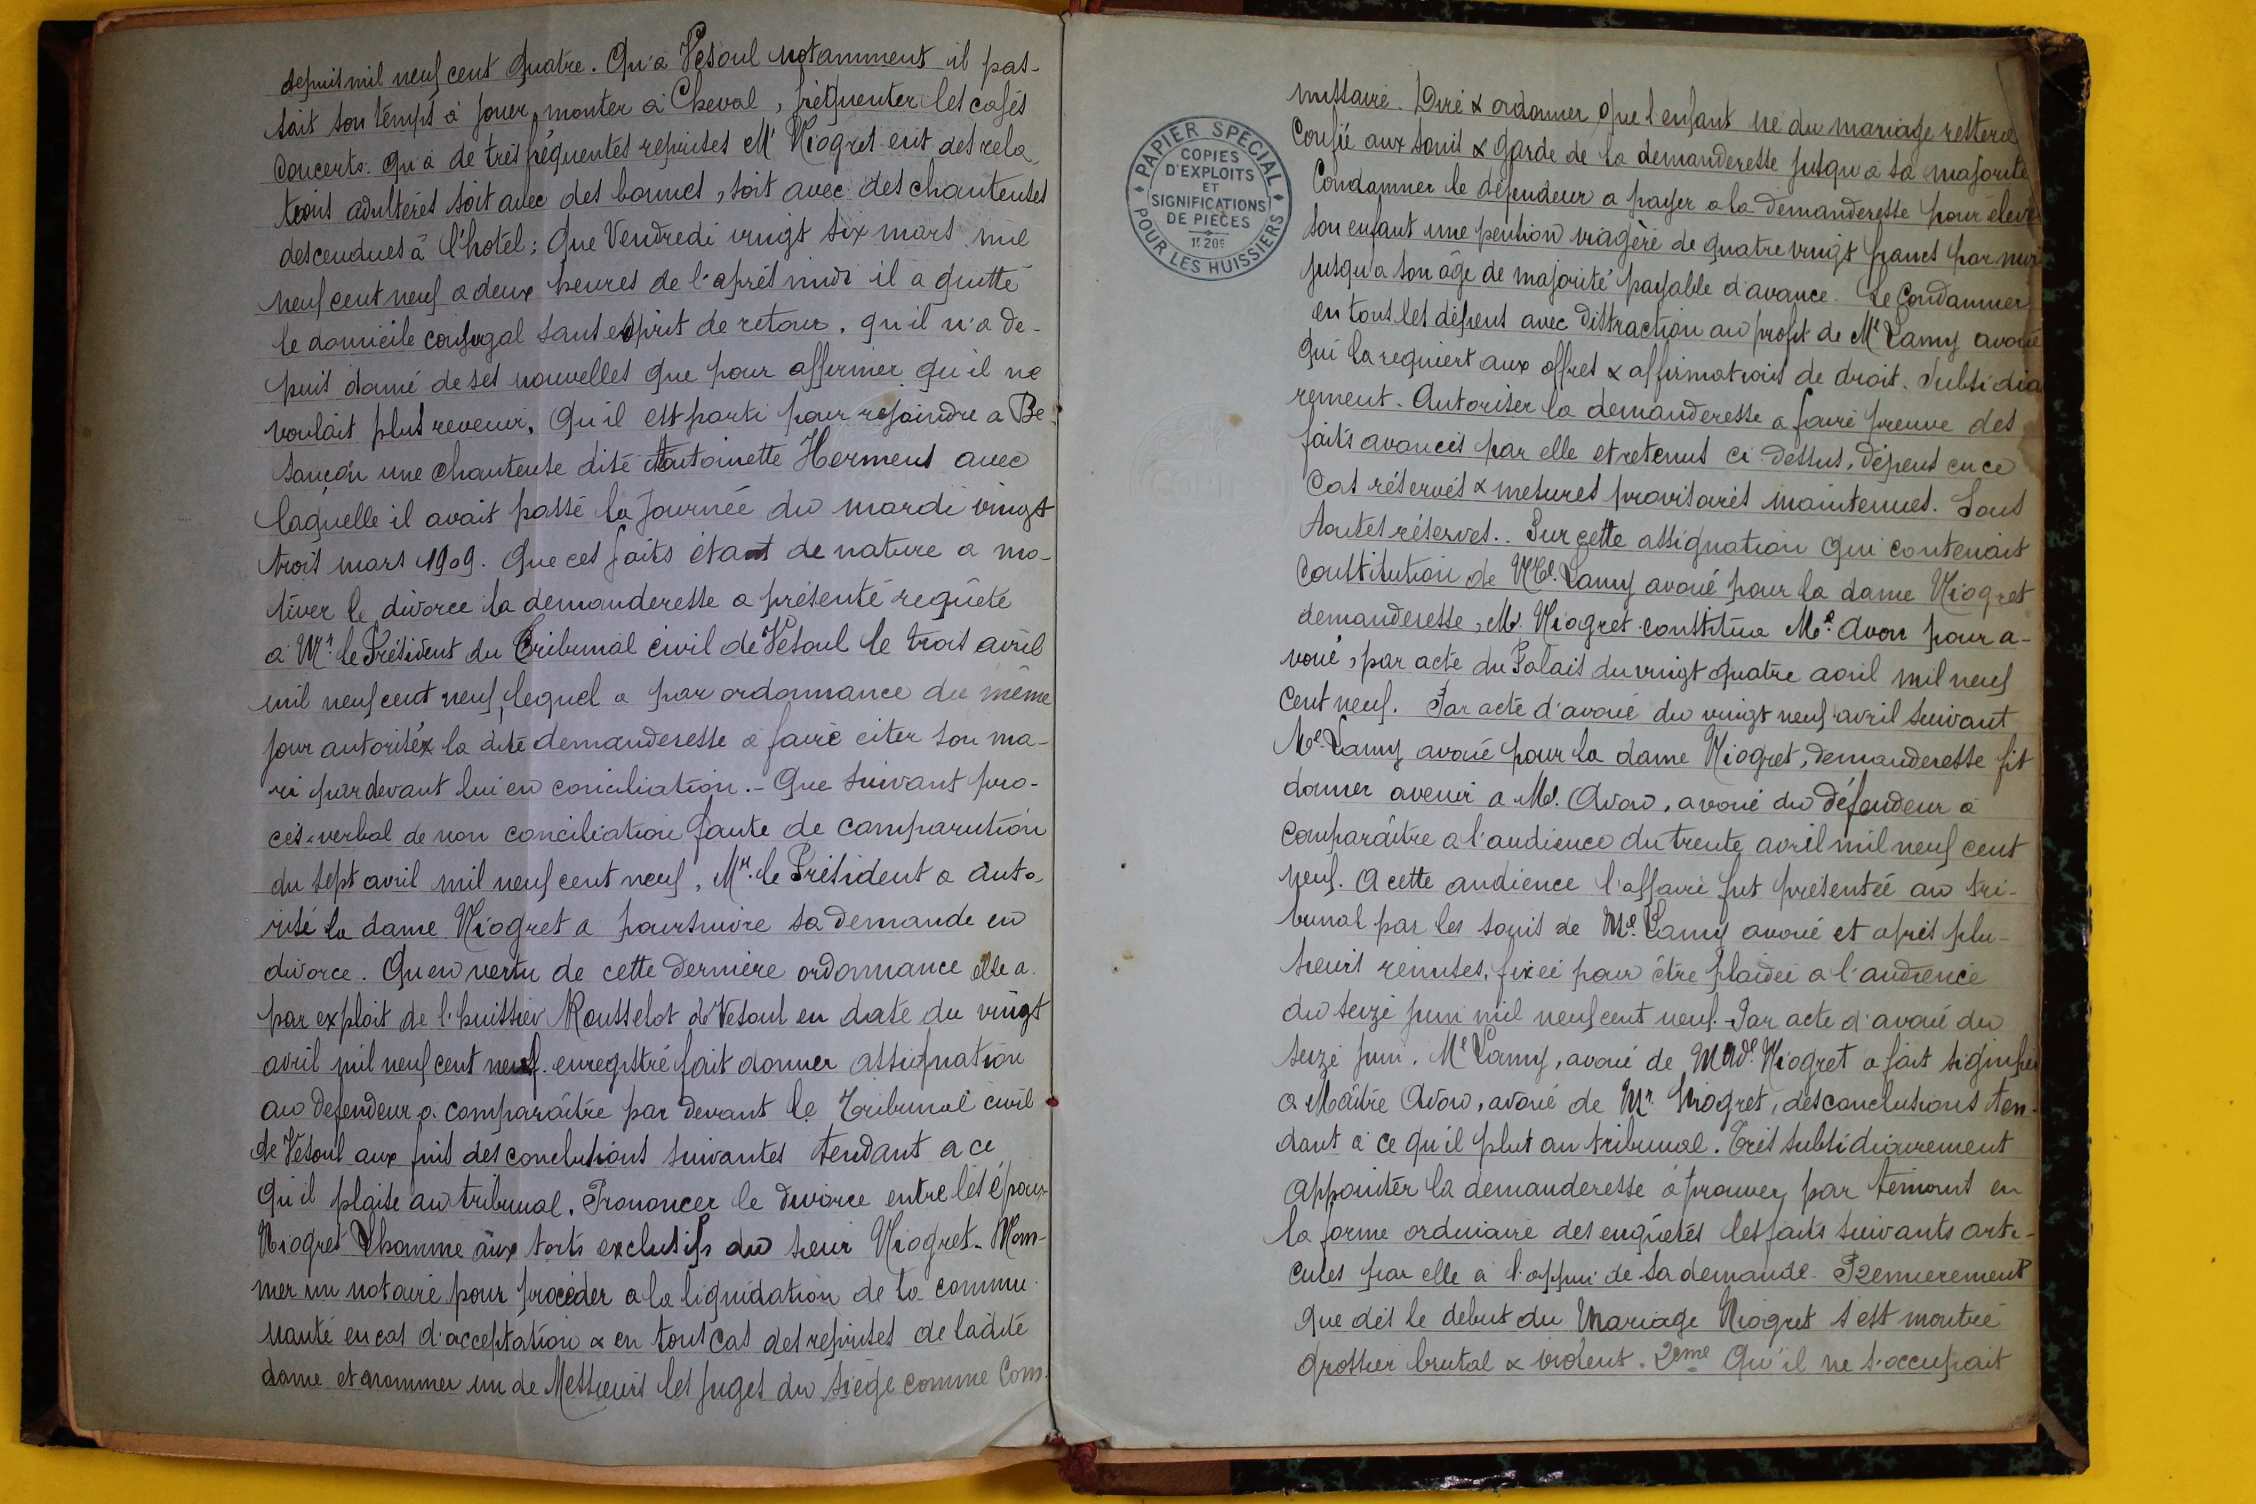 depuis mil neuf cent quatre. Qu'à Vesoul notamment il pas-
sait son temps à jouer, monter à Cheval, fréquenter les cafés
Concerts. Qu'à de très fréquentes reprises Mr Niogret eut des rela
tions adultères soit avec des bonnes, soit avec des chanteuses
descendues à l'hotel; Que Vendredi vingt six mars mil
neuf cent neuf a deux heures de l'après midi il a quitté
le domicile conjugal sans esprit de retour, qu'il n'a de-
puis donné de ses nouvelles que pour affirmer qu'il ne
voulait plus revenir. Qu'il est parti pour rejoindre a Be-
sançon une chanteuse dite Antoinette Hermens avec
laquelle il avait passé la journée du mardi vingt
trois mars 1909. Que ces faits étant de nature a mo-
tiver le divorce la demanderesse a présenté requête
a Mr le Président du Tribunal civil de Vesoul le trois avril
mil neuf cent neuf, lequel a par ordonnance du même
jour autorisé la dite demanderesse a faire citer son ma-
ri par devant lui en conciliation. - Que suivant pro-
cès-verbal de non conciliation faute de comparution
du sept avril mil neuf cent neuf, Mr. le Président a auto-
risé la dame Niogret a poursuivre sa demande en
divorce. Qu'en vertu de cette dernière ordonnance elle a
par exploit de l'huissier Rousselot de Vesoul en date du vingt
avril mil neuf cent neuf. enregistré fait donner assignation
au défendeur a comparaître par devant le Tribunal civil
de Vesoul aux fins des conclusions suivantes tendant a ce
Qu'il plaise au tribunal. Prononcer le divorce entre les époux
Niogret Lhomme aux torts exclusifs du sieur Niogret. Nom-
mer un notaire pour procéder a la liquidation de la commu-
nauté en cas d'acceptation & en tous cas des reprises de ladite
dame et nommer un de Messieurs les juges du siège comme Com-
PAPIER SPÉCIAL
COPIES
D'EXPLOITS
ET
SIGNIFICATIONS
DE PIÈCES
POUR LES HUISSIERS
missaire. Dire & ordonner que l'enfant né du mariage restera
Confié aux soins & garde de la demanderesse jusqu'à sa majorité
Condamner le défendeur a payer a la demanderesse pour élever
son enfant une pention viagère de quatre vingt francs par mois
jusqu'a son âge de majorité payable d'avance. Le Condamner
en tous les dépens avec distraction au profit de Me Lamy avoué
qui la requiert aux offres & affirmations de droit. Subsidiai
rement. Autoriser la demanderesse a faire preuve des
faits avancés par elle et retenus ci dessus, dépens en ce
Cas réservés & mesures provisoires maintenues. Sous
toutes réserves.. Sur cette assignation qui contenait
Constitution de Me. Lamy avoué pour la dame Niogret
demanderesse, Mr. Niogret constitua Me. Avon pour a-
voué, par acte du Palais du vingt quatre avril mil neuf
Cent neuf. Par acte d'avoué du vingt neuf avril suivant
Me. Lamy avoué pour la dame Niogret, demanderesse fit
donner avenir a Me. Avon, avoué du défendeur à
Comparaître a l'audience du trente avril mil neuf cent
neuf. A cette audience l'affaire fut présentée au tri-
bunal par les soins de Me. Lamy avoué et après plu-
sieurs remises, fixée pour être plaidée a l'audience
du seize juin mil neuf cent neuf. Par acte d'avoué du
seize juin. Me Lamy, avoué de Made. Niogret a fait signifier
a Maître Avon, avoué de Mr. Niogret, des conclusions ten-
dant à ce qu'il plut au tribunal. Très subsidiairement
appointer la demanderesse à prouver par témoins en
la forme ordinaire des enquêtes les faits suivants arti-
culés par elle a l'appui de sa demande. Premierement
que dès le debut du Mariage Niogret s'est montré
grossier brutal & violent. 2eme Qu'il ne s'occupait